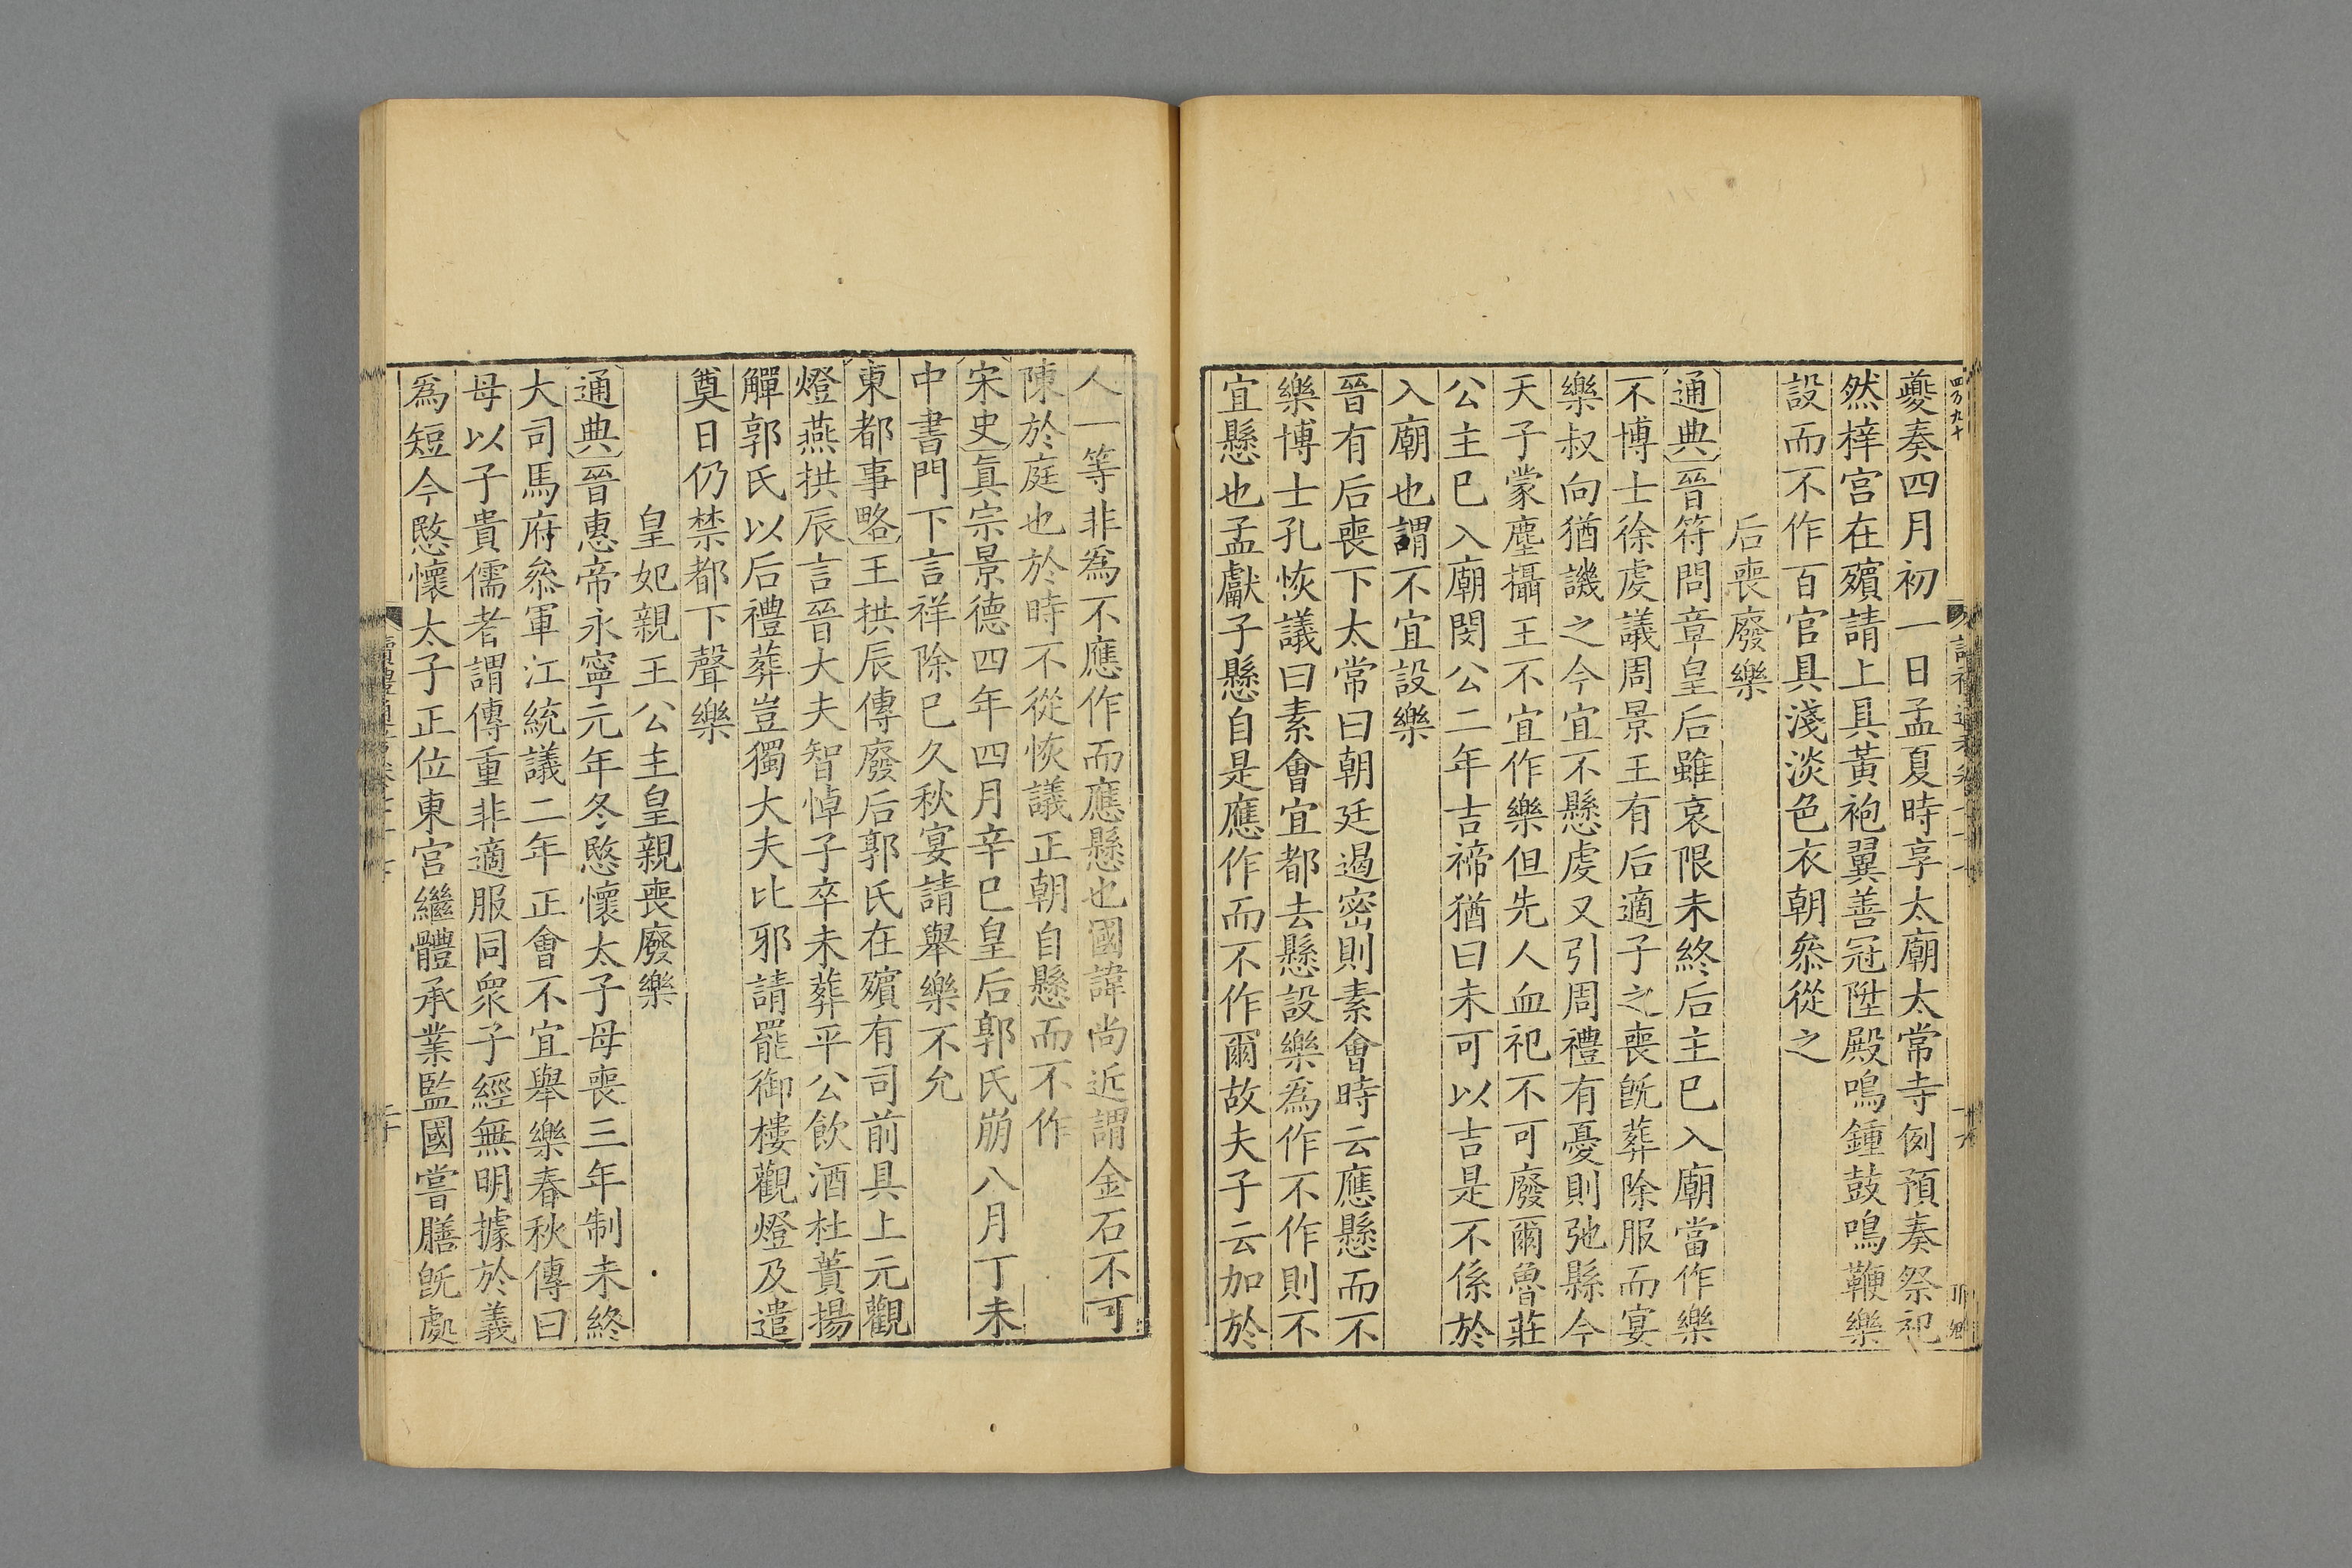 夔奏四月初一日孟夏時享太廟太常寺例預奏祭祀
然梓宫在殯請上具黃袍翼善冠陞殿鳴鍾鼓鳴鞭樂
設而不作百官具淺淡色衣朝叅從之
后喪廢樂
通典晉符問章皇后雖哀限未終后主已入廟當作樂
不博士徐虔議周景王有后適子之喪旣葬除服而宴
樂叔向猶譏之今宜不懸虔又引周禮有憂則弛縣今
天子蒙塵攝王不宜作樂但先人血祀不可廢爾魯莊
公主已入廟閔公二年吉禘猶曰未可以吉是不係於
入廟也謂不宜設樂
晉有后喪下太常曰朝廷遏密則素會時云應懸而不
樂博士孔恢議曰素會宜都去懸設樂爲作不作則不
宜懸也孟獻子懸自是應作而不作爾故夫子云加於
人一等非爲不應作而應懸也國諱尚近謂金石不可
陳於庭也於時不從恢議正朝自懸而不作
宋史眞宗景德四年四月辛巳皇后郭氏崩八月丁未
中書門下言祥除已久秋宴請舉樂不允
東都事略王拱辰傳廢后郭氏在殯有司前具上元觀
燈燕拱辰言晉大夫智悼子卒未葬平公飲酒杜蕢揚
觶郭氏以后禮葬豈獨大夫比邪請罷御樓觀燈及遣
奠日仍禁都下聲樂
皇妃親王公主皇親喪廢樂
通典晉惠帝永寧元年冬愍懷太子母喪三年制未終
大司馬府叅軍江統議二年正會不宜舉樂春秋傳曰
母以子貴儒者謂傳重非適服同眾子經無明據於義
爲短今愍懷太子正位東宫繼體承業監國嘗膳旣處